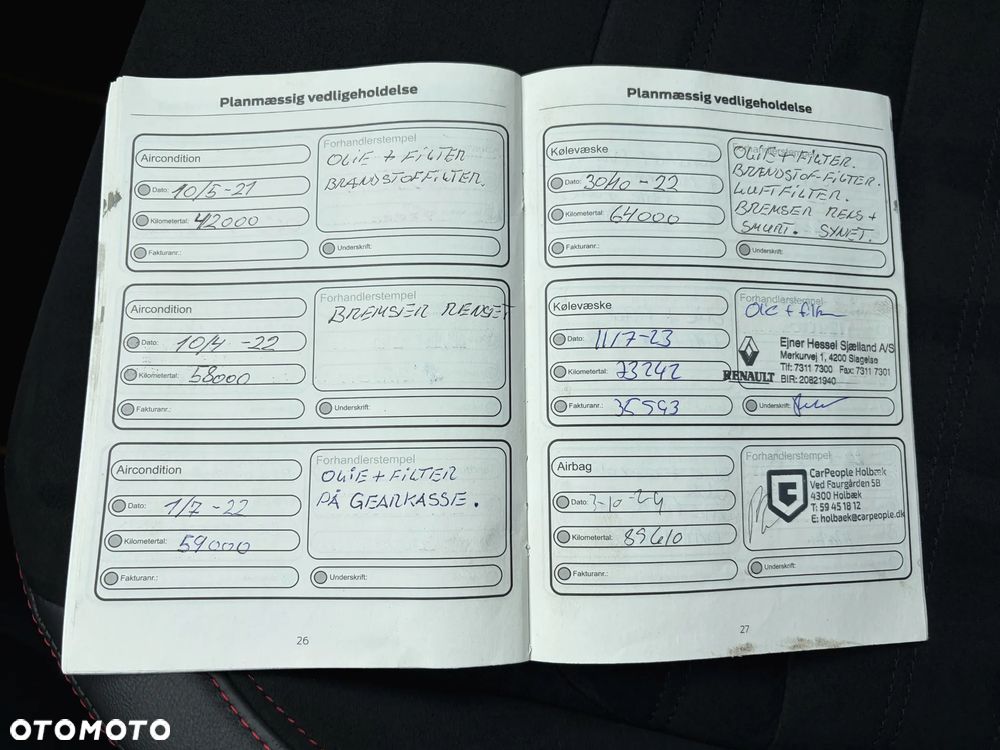 Planmæssig vedligeholdelse
Aircondition
Forhandlerstempel
OLIE + FILTER
BRANDSTOFFILTER.
Dato: 10/5-21
Kilometertal: 42000
Fakturanr.:
Underskrift:
Aircondition
Forhandlerstempel
BREMSER RENSET
Dato: 10/4 -22
Kilometertal: 58000
Fakturanr.:
Underskrift:
Aircondition
Forhandlerstempel
OLIE + FILTER
PÅ GEARKASSE.
Dato: 1/7-22
Kilometertal: 59000
Fakturanr.:
Underskrift:
26
Planmæssig vedligeholdelse
Kølevæske
Forhandlerstempel
OLIE + FILTER.
BRENDSTOF-FILTER.
LUFTFILTER.
BREMSER RENS +
SMURT. SYNET.
Dato: 30/10-22
Kilometertal: 64000
Fakturanr.:
Underskrift:
Kølevæske
Forhandlerstempel
Olie + filter
Ejner Hessel Sjælland A/S
Merkurvej 1, 4200 Slagelse
Tlf: 7311 7300 Fax: 7311 7301
BIR: 20821940
RENAULT
Dato: 11/7-23
Kilometertal: 73242
Fakturanr.: 35593
Underskrift:
Airbag
CarPeople Holbæk
Ved Faurgården 5B
4300 Holbæk
T: 59 45 18 12
E: holbaek@carpeople.dk
Dato: 3-10-24
Kilometertal: 89610
Fakturanr.:
Underskrift:
27
OTOMOTO